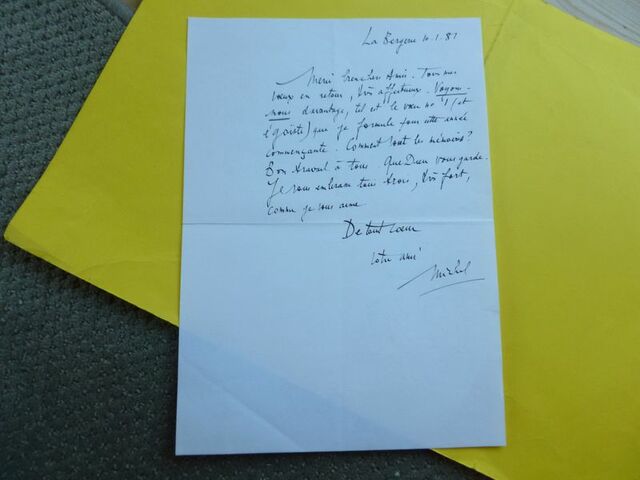 La Bergerie 10.1.87
Merci bien chers Amis. Tous mes
vœux en retour, très affectueux. Voyons-
nous davantage, tel est le vœu no 1 (et
égoïste) que je formule pour cette année
commençante. Comment vont les mémoires?
Bon travail à tous. Que Dieu vous garde.
Je vous embrasse tous trois, très fort,
comme je vous aime
De tout cœur
votre ami
Michel